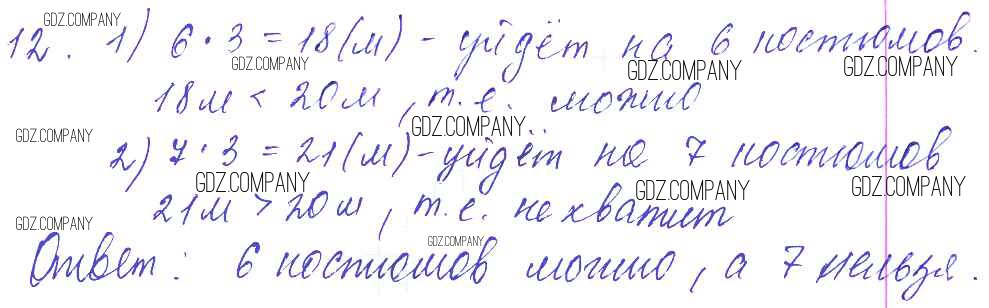 GDZ.COMPANY
12. 1) 6 · 3 = 18 (м) - уйдёт на 6 костюмов.
GDZ.COMPANY GDZ.COMPANY GDZ.COMPANY
18 м < 20 м, т.е. можно
GDZ.COMPANY GDZ.COMPANY
2) 7 · 3 = 21 (м) - уйдёт на 7 костюмов
GDZ.COMPANY GDZ.COMPANY GDZ.COMPANY
21 м > 20 м, т.е. не хватит
GDZ.COMPANY GDZ.COMPANY
Ответ: 6 костюмов можно, а 7 нельзя.